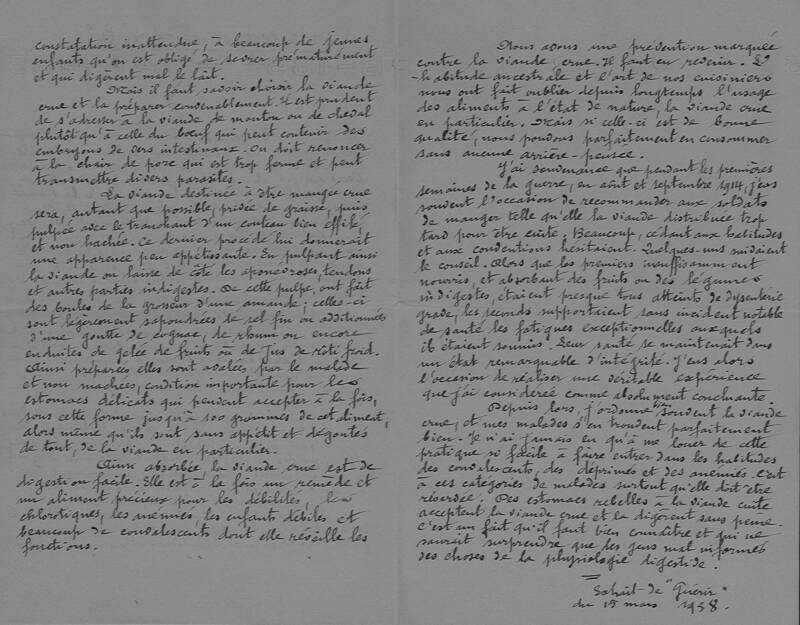 constatation inattendue, à beaucoup de jeunes
enfants qu'on est obligé de sevrer prématurément
et qui digèrent mal le lait.
Mais il faut savoir choisir la viande
crue et la préparer convenablement. Il est prudent
de s'adresser à la viande de mouton ou de cheval
plutôt qu'à celle du bœuf qui peut contenir des
embryons de vers intestinaux. On doit renoncer
à la chair de porc qui est trop ferme et peut
transmettre divers parasites.
La viande destinée à être mangée crue
sera, autant que possible, privée de graisse, puis
pulpée avec le tranchant d'un couteau bien effilé,
et non hachée. Ce dernier procédé lui donnerait
une apparence peu appétissante. En pulpant ainsi
la viande on laisse de côté les aponévroses, tendons
et autres parties indigestes. De cette pulpe, on fait
des boules de la grosseur d'une amande; celles-ci
sont légèrement saupoudrées de sel fin ou additionnées
d'une goutte de cognac, de rhum ou encore
enduites de gelée de fruits ou de jus de rôti froid.
Ainsi préparées elles sont avalées par le malade
et non machées, condition importante pour les
estomacs délicats qui peuvent accepter à la fois,
sous cette forme jusqu'à 100 grammes de cet aliment,
alors même qu'ils sont sans appétit et dégoutés
de tout, de la viande en particulier.
Ainsi absorbée la viande crue est de
digestion facile. Elle est à la fois un remède et
un aliment précieux pour les débilités, les
chlorotiques, les anémiés, les enfants débiles et
beaucoup de convalescents dont elle réveille les
fonctions.
Nous avons une prévention marquée
contre la viande crue. Il faut en revenir. L'
habitude ancestrale et l'art de nos cuisiniers
nous ont fait oublier depuis longtemps l'usage
des aliments à l'état de nature, la viande crue
en particulier. Mais si celle-ci est de bonne
qualité, nous pouvons parfaitement en consommer
sans aucune arrière-pensée.
J'ai souvenance que pendant les premières
semaines de la guerre, en août et septembre 1914, j'eus
souvent l'occasion de recommander aux soldats
de manger telle qu'elle la viande distribuée trop
tard pour être cuite. Beaucoup, cédant aux habitudes
et aux conventions hésitaient. Quelques-uns suivaient
le conseil. Alors que les premiers insuffisamment
nourris, et absorbant des fruits ou des légumes
indigestes, étaient presque tous atteints de dysenterie
grave, les seconds supportaient sans incident notable
de santé les fatigues exceptionnelles auxquels
il étaient soumis. Leur santé se maintenait dans
un état remarquable d'intégrité. J'eus alors
l'occasion de réaliser une véritable expérience
que j'ai considérée comme absolument concluante.
Depuis lors, j'ordonne souvent la viande
crue, et mes malades s'en trouvent parfaitement
bien. Je n'ai jamais eu qu'à me louer de cette
pratique si facile à faire entrer dans les habitudes
des convalescents, des déprimés et des anémiés. C'est
à ces catégories de malades surtout qu'elle doit être
réservée. Des estomacs rebelles à la viande cuite
acceptent la viande crue et la digèrent sans peine.
C'est un fait qu'il faut bien connaître et qui ne
saurait surprendre que des gens mal informés
des choses de la physiologie digestive.
Extrait de "Guérir"
du 15 mars 1938.